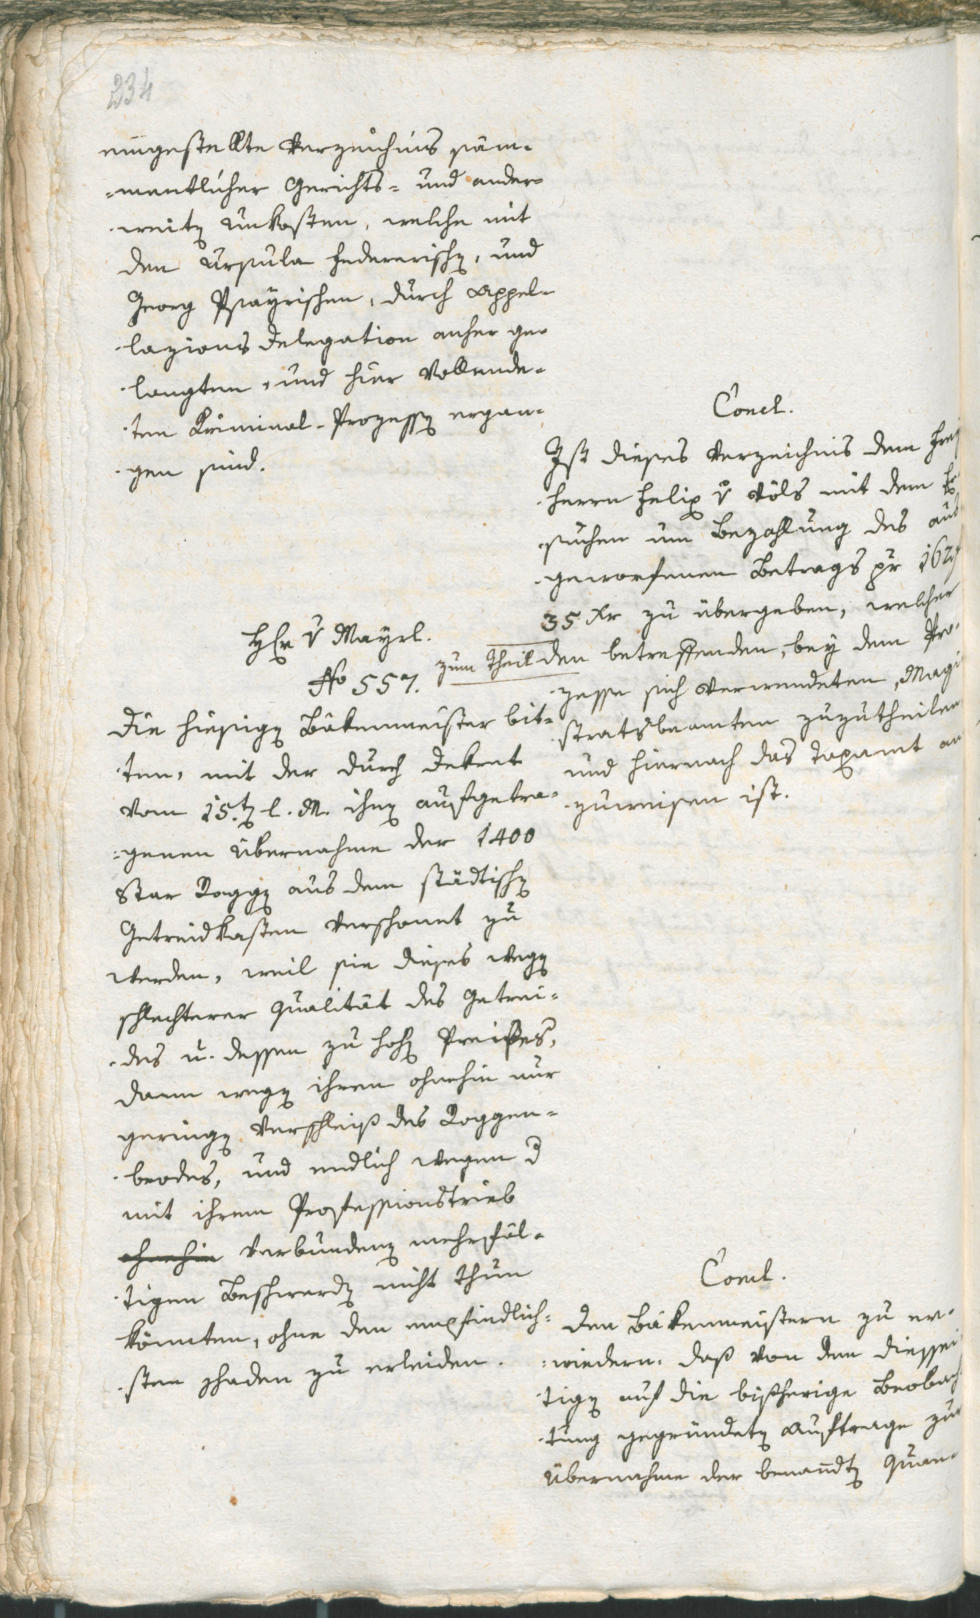 234
eingestellte Verzeichnis säm-
-mentlicher Gerichts- und ander-
-weitg Unkosten, welche mit
den Ursula Federerischg, und
Georg Psayrischen, durch Appel-
lazions Delegation anher ge-
langten, und hier Vollende-
ten Kriminal-Prozessg ergan-
gen sind.
Concl.
Ist dieses Verzeichnis dem Frey
herrn Felix v Völs mit dem Er-
suchen um Bezahlung des aus
geworfenen Betrags pr
35 Xr zu übergeben, welcher
zum Theil den betreffenden, bey dem Pro-
zesse sich verwendeten, Magi
stratsbeamten zuzutheilen
und hiernach das Taxamt an
zuweisen ist.
Hr v Mayrl.
No 557.
Die hiesigg Bäkenmeister bit-
ten, mit der durch Dekret
vom 15.tg l. M. ihng aufgetra-
-genen Übernahme der 1400
Star Roggg aus dem städtischg
Getreidkasten verschont zu
werden, weil sie dieses wegg
schlechterer Qualität des Getrei-
des u. dessen zu hohg Preises,
dann wegg ihrem ohnehin nur
geringg Verschleiß des Roggen-
brodes, und endlich wegen d
mit ihrem Professionstrieb
ohnehin verbundeng mehrfäl-
tigen Beschwerdg nicht thun
könnten, ohne den empfindlich-
sten Schaden zu erleiden.
Concl.
Den Bäkenmeistern zu er-
-wiedern: daß von dem diessei
tigg auf die bißherige Beobach
tung gegründetg Auftrage zur
Übernahme der benanndtg Quan-